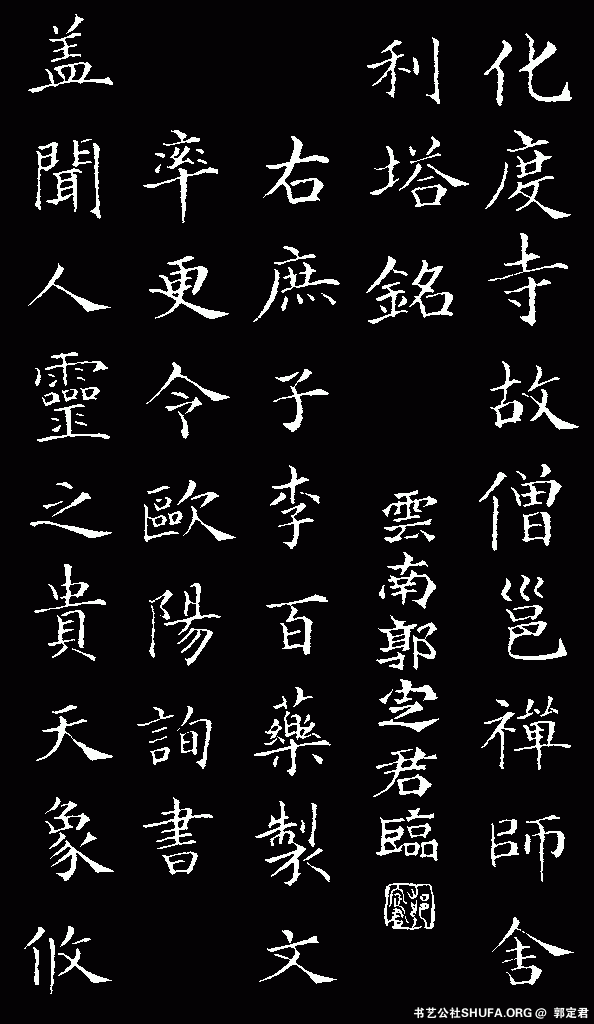 化度寺故僧邕禪師舍
利塔銘
雲南郭定君臨
右庶子李百藥製文
率更令歐陽詢書
盖聞人靈之貴天象攸
书艺公社SHUFA.ORG @ 郭定君